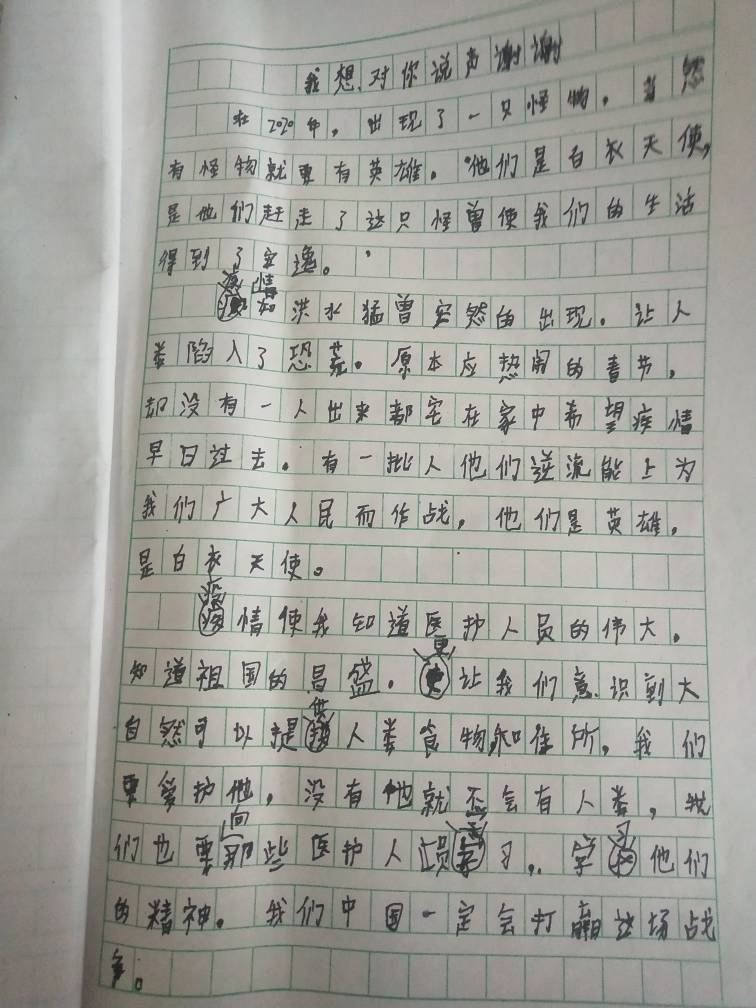 我想对你说声谢谢
在2020年，出现了一只怪物。当然
有怪物就更有英雄。他们是白衣天使，
是他们赶走了这只怪兽使我们的生活
得到了安逸。
疫情如洪水猛兽突然的出现。让人
类陷入了恐荒。原本应热闹的春节，
却没有一人出来都宅在家中希望疾情
早日过去。有一批人他们逆流能上为
我们广大人民而作战，他们是英雄，
是白衣天使。
疫情使我知道医护人员的伟大。
知道祖国的昌盛。更让我们意识到大
自然可以提供人类食物和住所，我们
要爱护他，没有他就不会有人类，我
们也要向那些医护人员学习，学习他们
的精神。我们中国一定会打赢这场战
争。